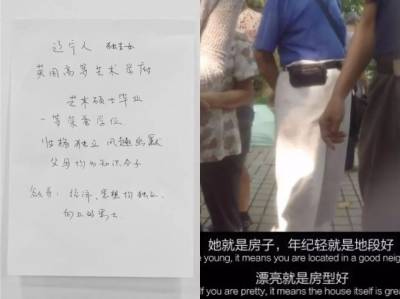 辽宁人 独生女
英国高等艺术学府
艺术硕士毕业
一等荣誉学位
性格独立 风趣幽默
父母均为知识分子
经济、思想均独立、
向上的男士
她就是房子，年纪轻就是地段好
e young, it means you are located in a good neig
漂亮就是房型好
If you are pretty, it means the house itself is grea